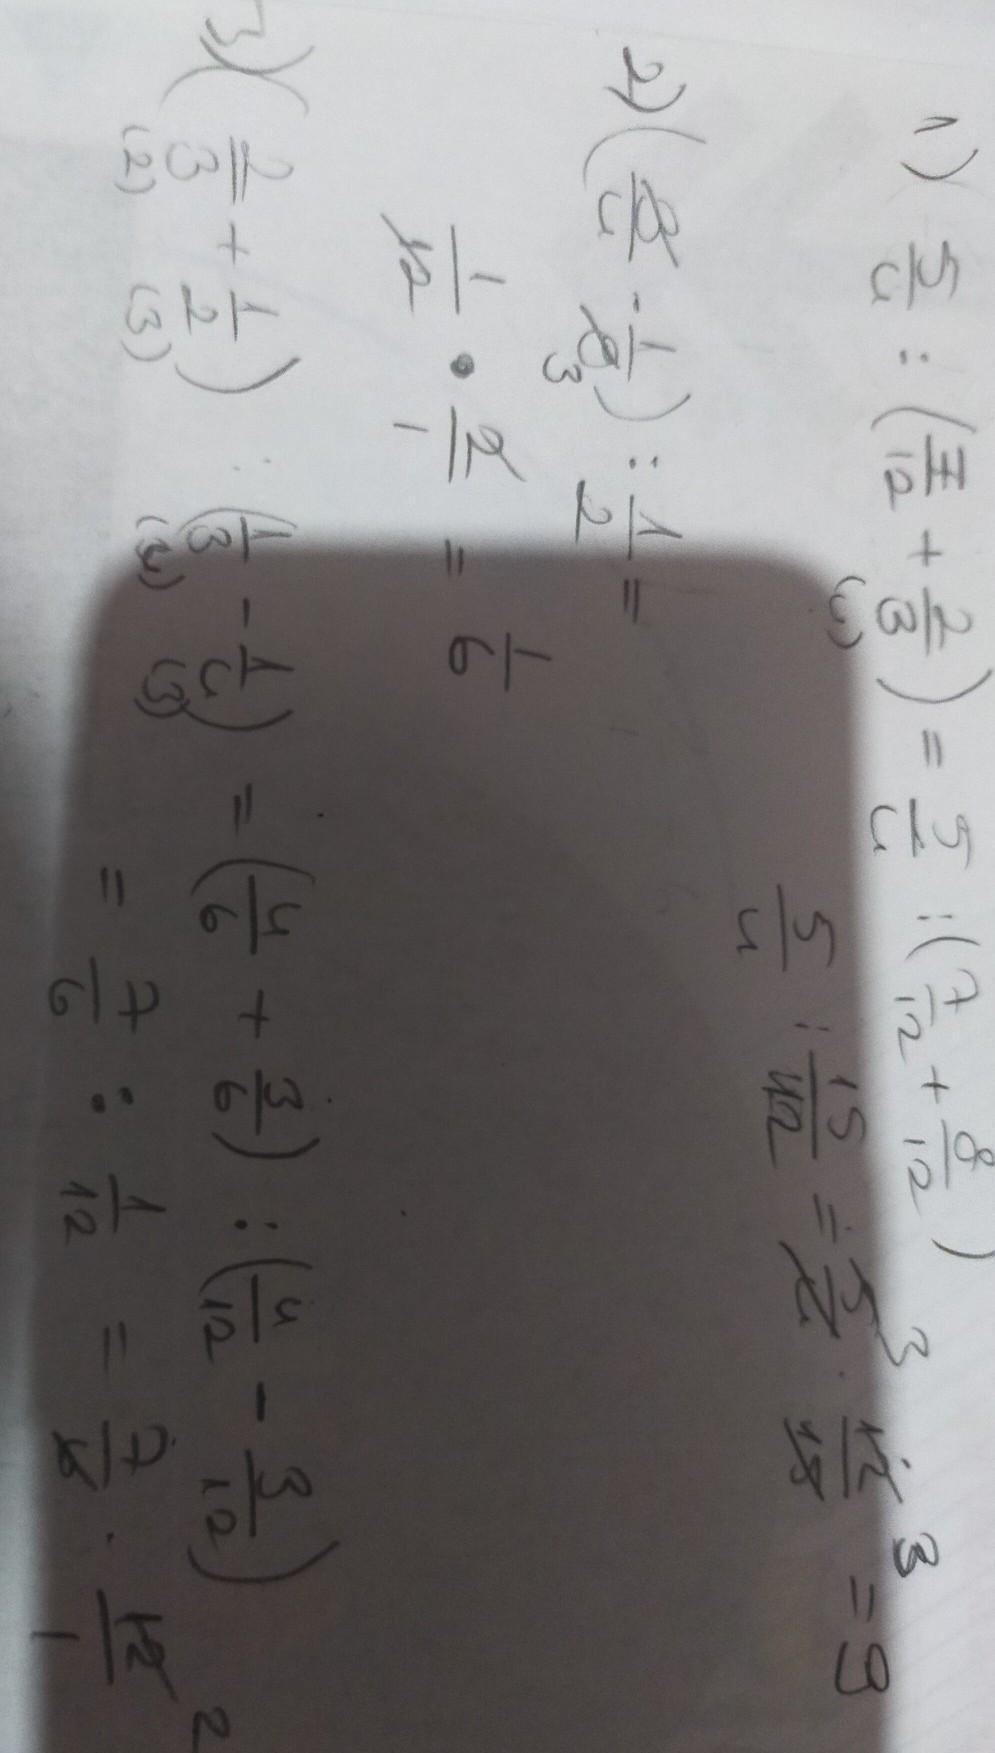 1) 5/4 : (7/12 + 2/3) = 5/4 : (7/12 + 8/12)
(4)
5/4 : 15/12 = 5/4 · 12/15 = 9
3 3
2) ( /4 · 1/ ) : 1/2 =
3
1/12 • 2/1 = 1/6
3) (2/3 + 1/2) : (1/3 - 1/4) = (4/6 + 3/6) : (4/12 - 3/12)
(2) (3) (4) (3)
= 7/6 : 1/12 = 7/6 · 12/1
2